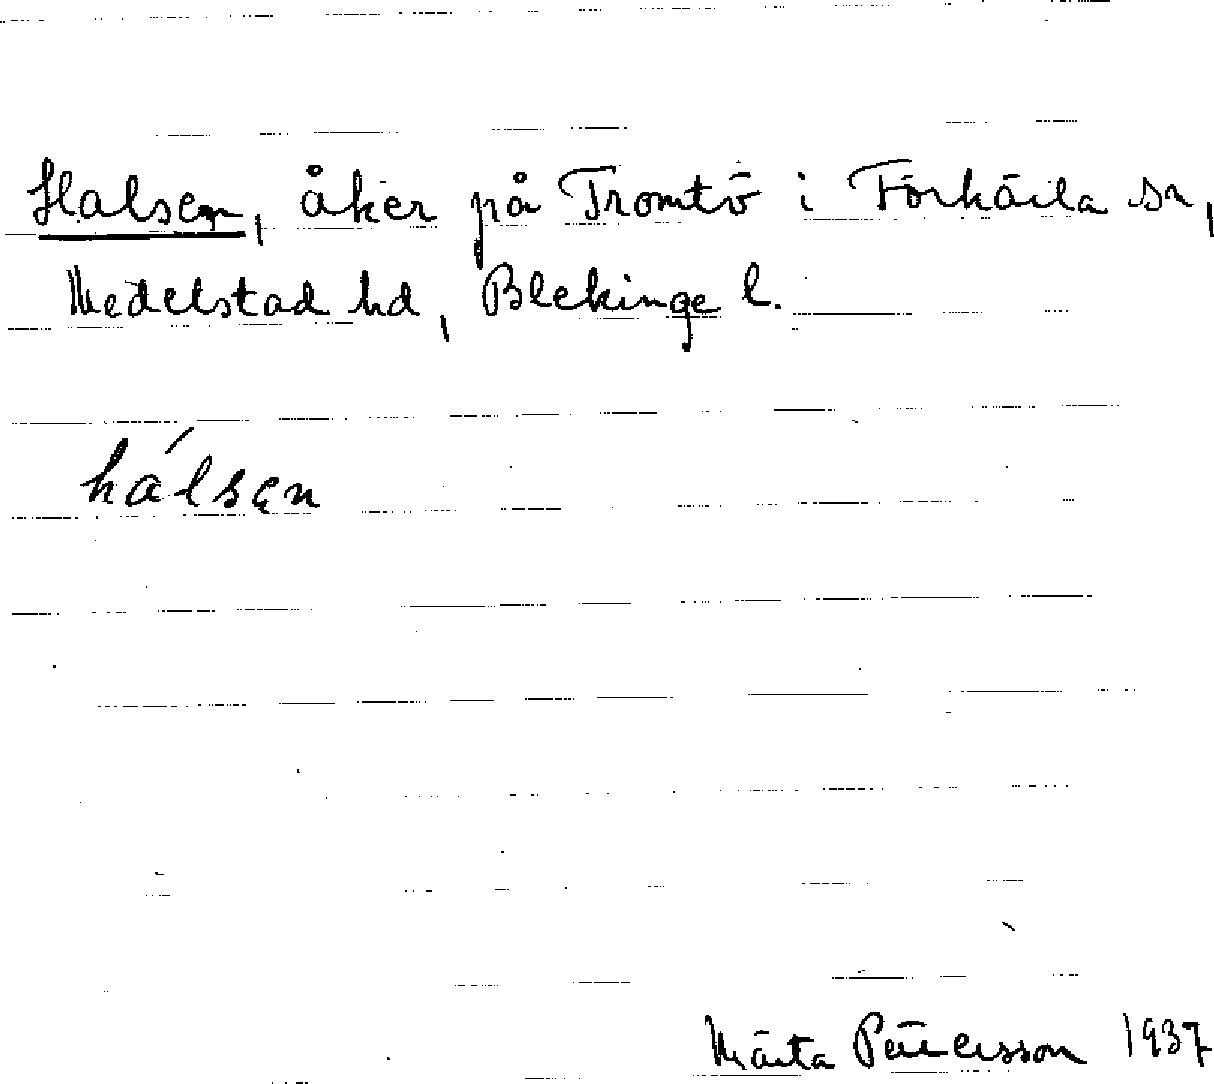 Halsen, åker på Tromtö i Förkärla sn,
Medelstad hd, Blekinge l.
hálsęn
Märta Petersson 1937